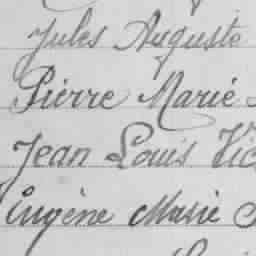 Jules Auguste
Pierre Marie
Jean Louis
Eugène Marie